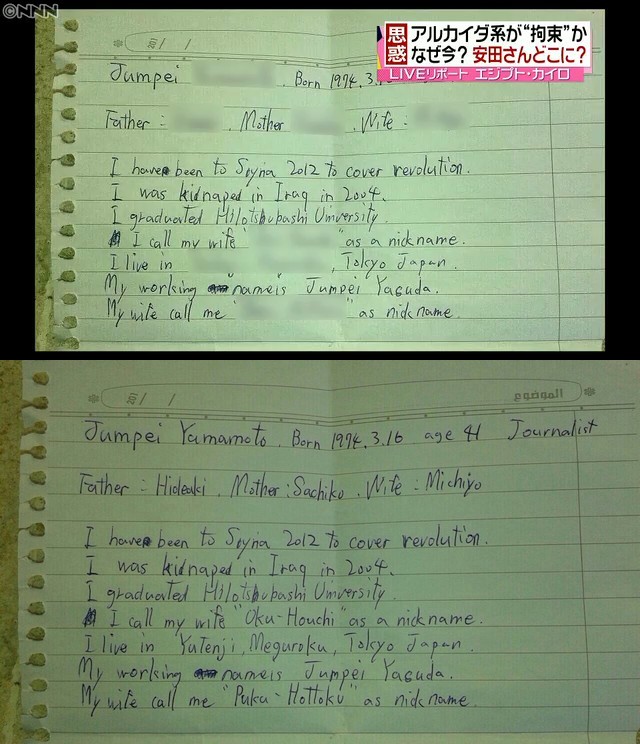 ©NNN
思惑
アルカイダ系が“拘束”か
なぜ今?安田さんどこに?
LIVEリポート エジプト・カイロ
Jumpei . Born 1974.3.16
Father = . Mother . Wife =
I have been to Syria 2012 to cover revolution.
I was kidnaped in Iraq in 2004.
I graduated Hitotsubashi University.
I call my wife " " as a nickname.
I live in , Tokyo Japan.
My working "name" is Jumpei Yasuda.
My wife call me " " as nickname.
201 / /
الموضوع
Jumpei Yamamoto. Born 1974.3.16 age 41 Journalist
Father = Hideaki. Mother: Sachiko. Wife = Michiyo
I have been to Syria 2012 to cover revolution.
I was kidnaped in Iraq in 2004.
I graduated Hitotsubashi University.
I call my wife "Oku-Houchi" as a nickname.
I live in Yutenji, Meguroku, Tokyo Japan.
My working name is Jumpei Yasuda.
My wife call me "Puku-Hottoku" as nickname.